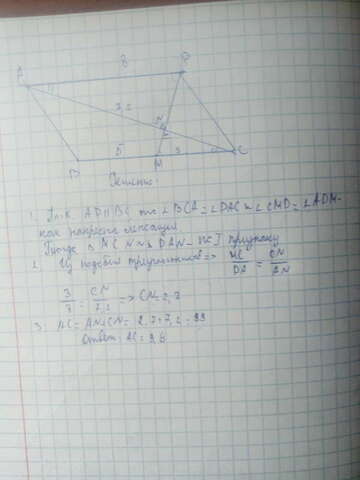 A 8 D
7,2
N
B 5 M 3 C
Решение:
1. Т.к. AD || BC то ∠BCA = ∠DAC и ∠CMD = ∠ADM -
как накрест лежащие
Тогда Δ MCN ~ Δ DAN - по I признаку
2. Из подобия треугольников => MC/DA = CN/AN
3/8 = CN/7,2 => CN = 2,7
3. AC = AN + CN = 2,7 + 7,2 = 99
Ответ: AC = 9,9